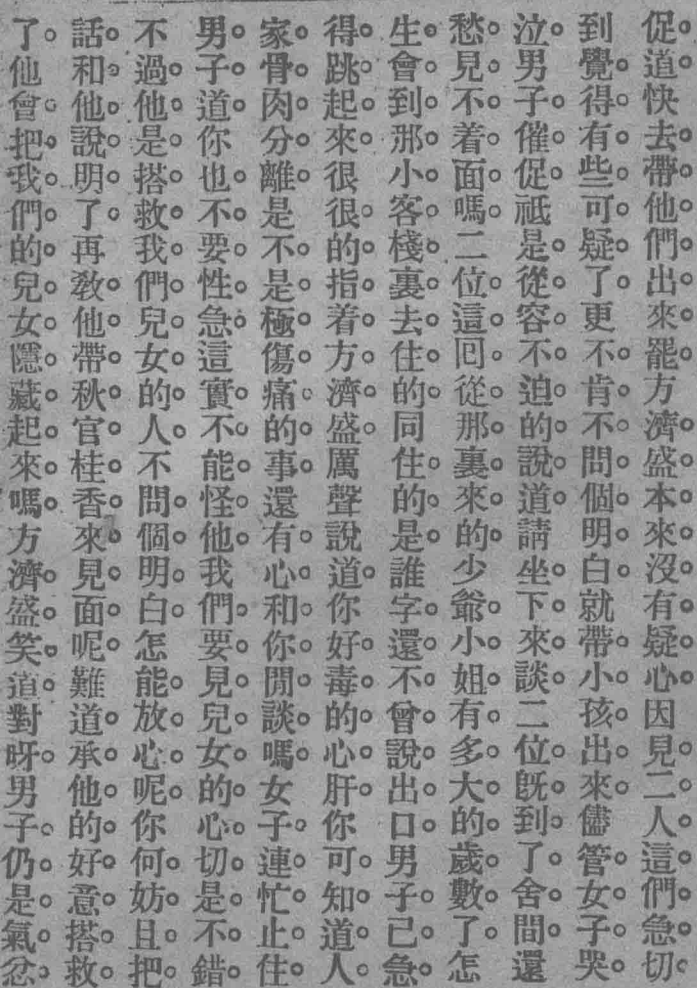 促道快去帶他們出來罷方濟盛本來沒有疑心因見二人這們急切
到覺得有些可疑了更不肯不問個明白就帶小孩出來儘管女子哭
泣男子催促祇是從容不迫的說道請坐下來談二位旣到了舍間還
愁見不着面嗎二位這囘從那裏來的少爺小姐有多大的歲數了怎
生會到那小客棧裏去住的同住的是誰字還不曾說出口男子已急
得跳起來很很的指着方濟盛厲聲說道你好毒的心肝你可知道人
家骨肉分離是不是極傷痛的事還有心和你閒談嗎女子連忙止住
男子道你也不要性急這實不能怪他我們要見兒女的心切是不錯
不過他是搭救我們兒女的人不問個明白怎能放心呢你何妨且把
話和他說明了再敎他帶秋官桂香來見面呢難道承他的好意搭救
了他會把我們的兒女隱藏起來嗎方濟盛笑道對呀男子仍是氣忿